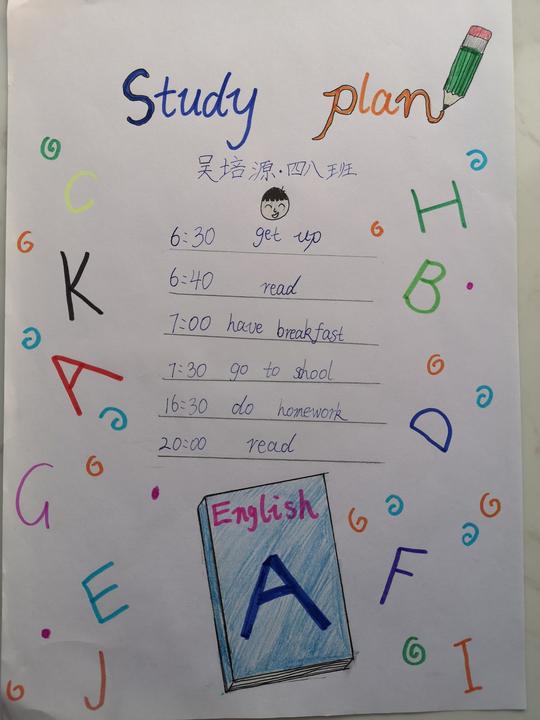 Study plan
吴培源·四八班
6:30 get up
6:40 read
7:00 have breakfast
7:30 go to school
16:30 do homework
20:00 read
C
H
K
B
A
D
G
English
A
E
F
J
I